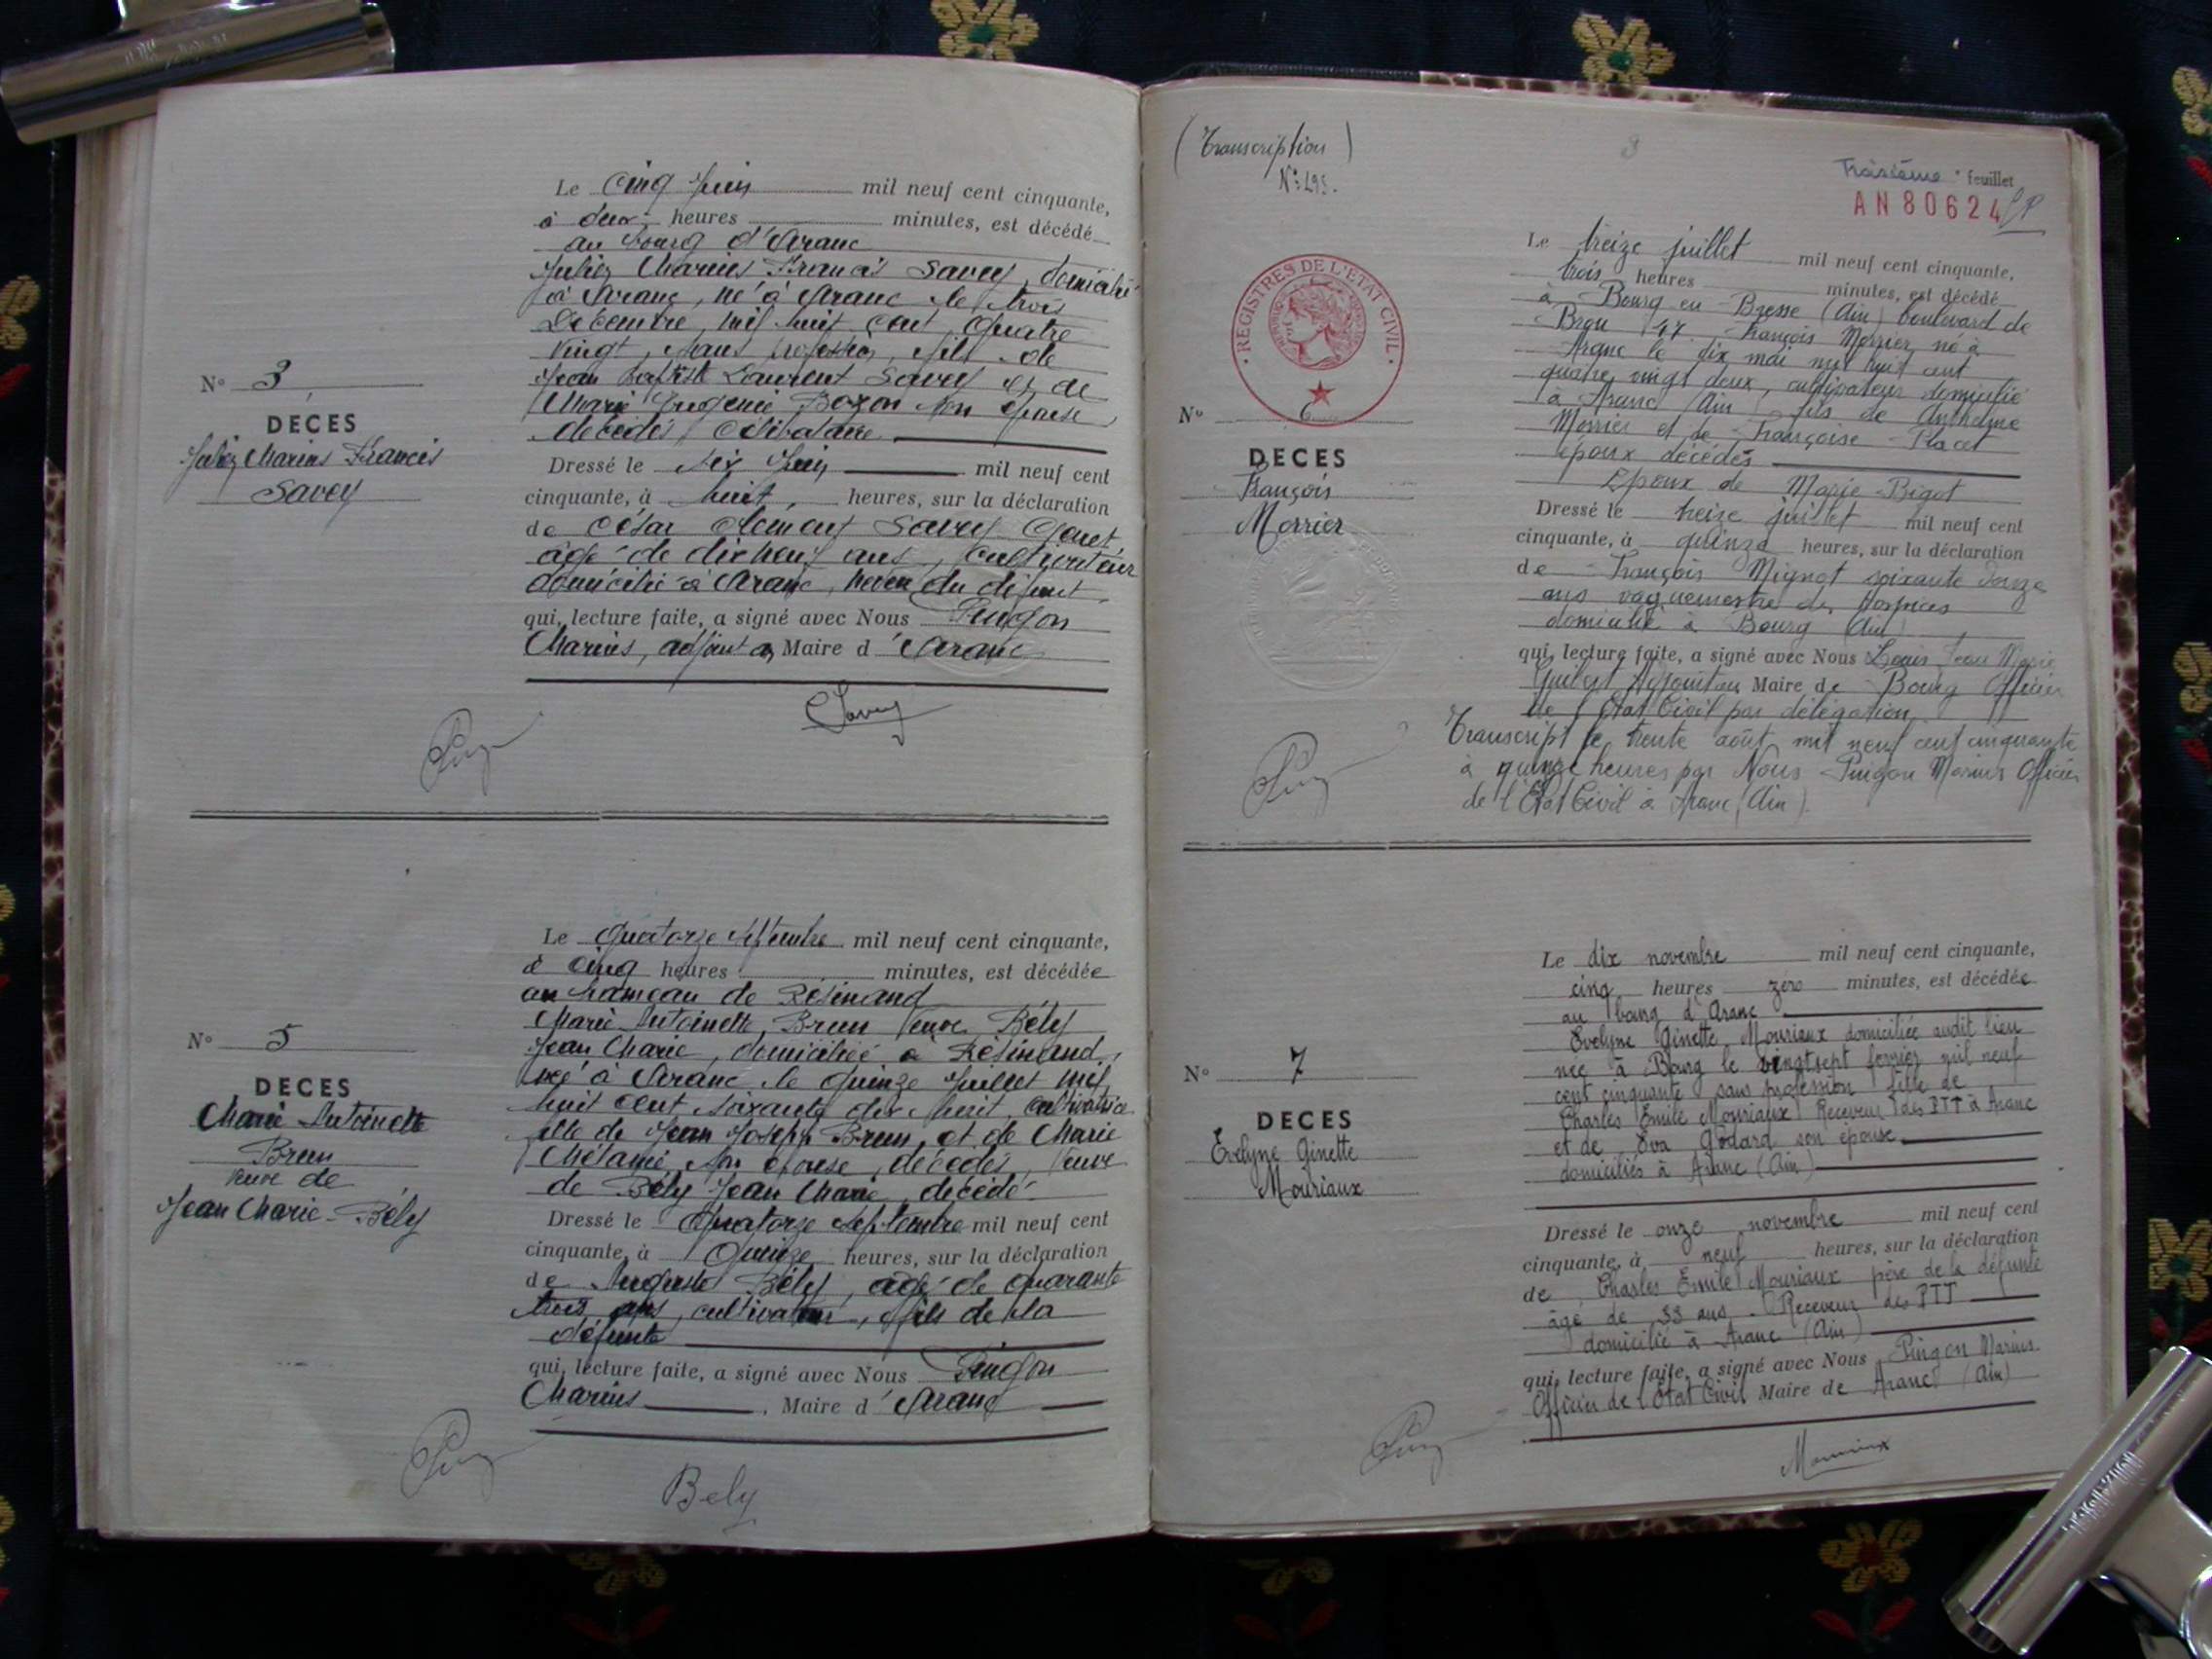 N° 3
DECES
Julien Marius Francis
Savey
Le cinq juin mil neuf cent cinquante,
à deux heures minutes, est décédé
au bourg d'Aranc
Julien Marius Francis Savey, domicilié
à Aranc, né à Aranc le trois
Décembre, mil huit cent quatre
vingt, sans profession, fils de
Jean Baptiste Laurent Savey et de
Marie Eugenie Bozon son épouse
décédés, Célibataire
Dressé le six juin mil neuf cent
cinquante, à huit, heures, sur la déclaration
de César Clement Savey
âgé de dixneuf ans, cultivateur
domicilié à Aranc, neveu du défunt
qui, lecture faite, a signé avec Nous Pingon
Marius, adjoint au Maire d'Aranc
Savey
N° 5
DECES
Marie Antoinette
Brun
veuve de
Jean Marie Bély
Le quatorze septembre mil neuf cent cinquante,
à cinq heures minutes, est décédée
au hameau de Résinand
Marie Antoinette Brun Veuve Bély
Jean Marie, domiciliée à Résinand,
née à Aranc le quinze juillet mil
huit cent soixante dix huit, cultivatrice
fille de Jean Joseph Brun et de Marie
Mélanie, son épouse, décédés, Veuve
de Bély Jean Marie, décédé.
Dressé le quatorze septembre mil neuf cent
cinquante, à quinze heures, sur la déclaration
de Auguste Bély, âgé de quarante
trois ans, cultivateur, fils de la
défunte
qui, lecture faite, a signé avec Nous Pingon
Marius, Maire d'Aranc
Bely
(Transcription)
N° 295.
3
Troisième feuillet
AN80624
REGISTRES DE L'ETAT CIVIL
N° 6
DECES
François
Morrier
Le treize juillet mil neuf cent cinquante,
trois heures minutes, est décédé
à Bourg en Bresse (Ain) boulevard de
Brou 47 François Morrier né à
Aranc le dix mai mil huit cent
quatre vingt deux, cultivateur domicilié
à Aranc (Ain) fils de Anthelme
Morrier et de Françoise Placet
époux décédés
Epoux de Marie Bigot
Dressé le treize juillet mil neuf cent
cinquante, à quinze heures, sur la déclaration
de François Mignot soixante douze
ans vaguemestre des Hospices
domicilié à Bourg (Ain)
qui, lecture faite, a signé avec Nous Louis Jean Marie
Guilbert Adjoint au Maire de Bourg Officier
de l'Etat Civil par délégation
Transcript le trente août mil neuf cent cinquante
à quinze heures par Nous Pingon Marius Officier
de l'Etat Civil à Aranc (Ain).
N° 7
DECES
Evelyne Ginette
Mouriaux
Le dix novembre mil neuf cent cinquante,
cinq heures zéro minutes, est décédée
au bourg d'Aranc
Evelyne Ginette Mouriaux domiciliée audit lieu
née à Bourg le vingt sept fevrier mil neuf
cent cinquante sans profession fille de
Charles Emile Mouriaux Receveur des PTT à Aranc
et de Eva Godard son épouse
domiciliés à Aranc (Ain)
Dressé le onze novembre mil neuf cent
cinquante, à neuf heures, sur la déclaration
de Charles Emile Mouriaux père de la défunte
âgé de 33 ans Receveur des PTT
domicilié à Aranc (Ain)
qui, lecture faite, a signé avec Nous Pingon Marius
Officier de l'Etat Civil Maire de Aranc (Ain)
Mouriaux